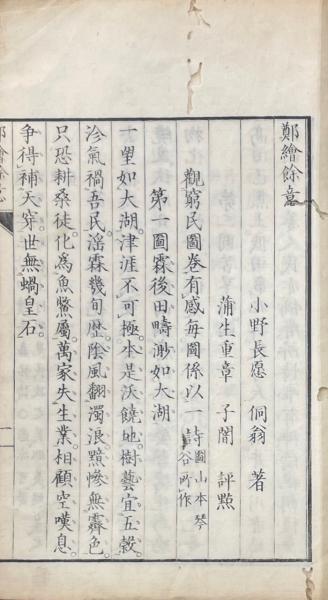 鄭繪餘意
小野長愿 侗翁 著
蒲生重章 子闇 評點
觀窮民圖卷有感每圖係以一詩圖山本琴谷所作
第一圖霖後田疇渺如大湖
一望如大湖津涯不可極本是沃饒地樹藝宜五穀
沴氣禍吾民滛霖幾旬歴陰風翻濁浪黯慘無霽色
只恐耕桑徒化為魚鱉屬萬家失生業相顧空嘆息
争得補天穿世無蝸皇石